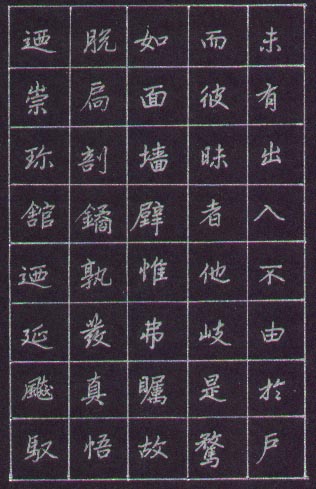 未有出入不由於戶
而彼昧者他岐是騖
如面墻壁惟弗矚故
脫扃剖鐍孰發真悟
迺崇珎舘迺延飈馭